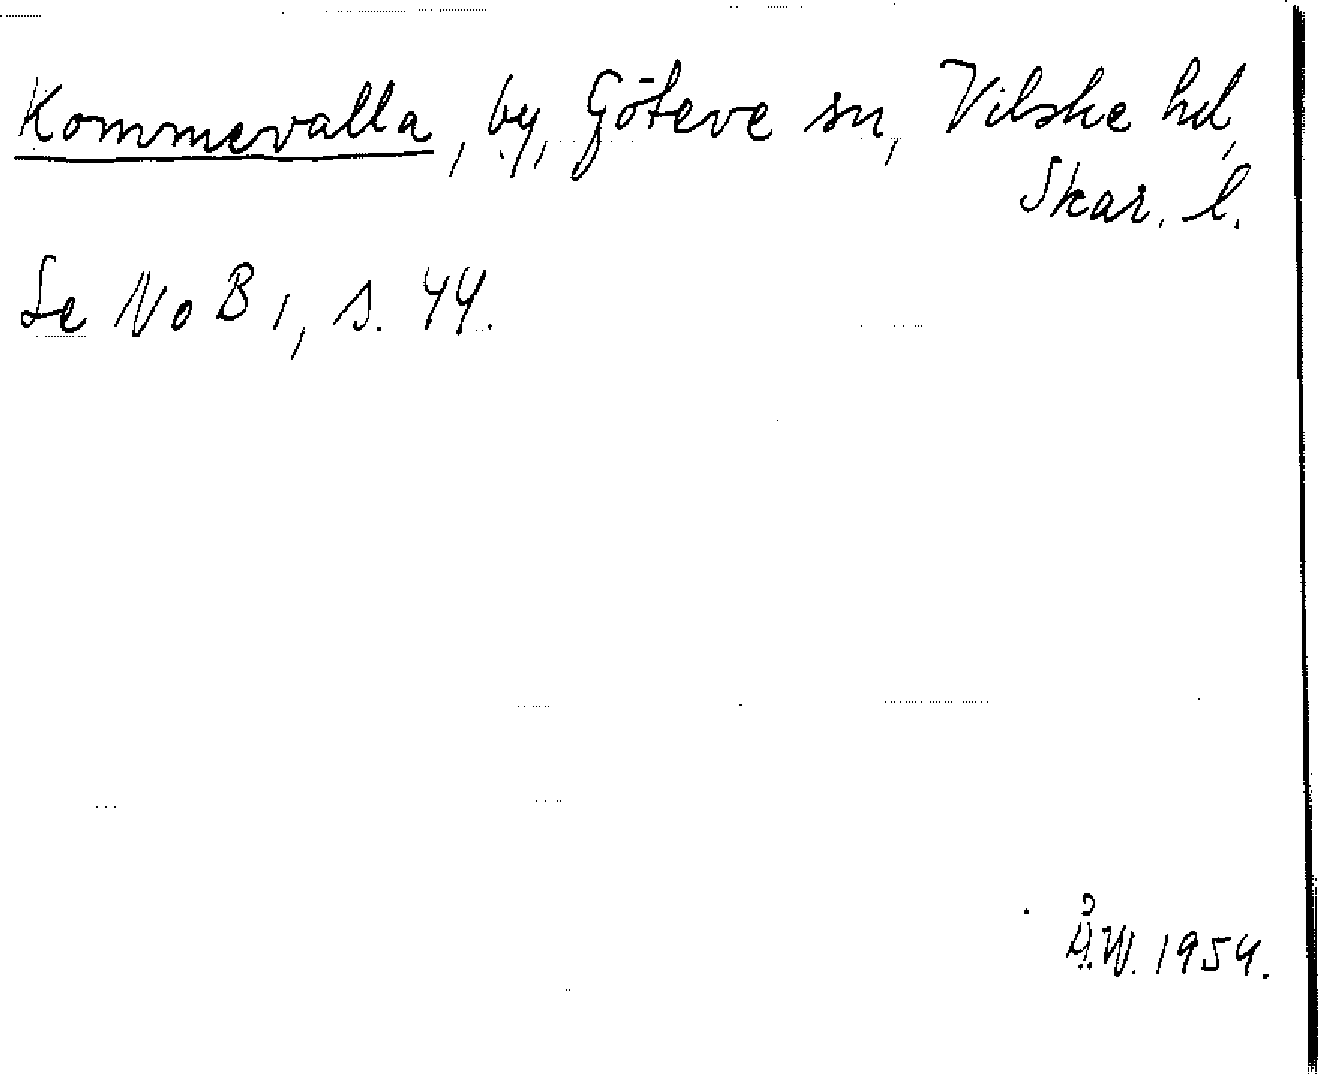 Kommevalla, by, Göteve sn, Vilske hd,
Skar. l.
Se NoB 1, s. 44.
Å.W. 1954.